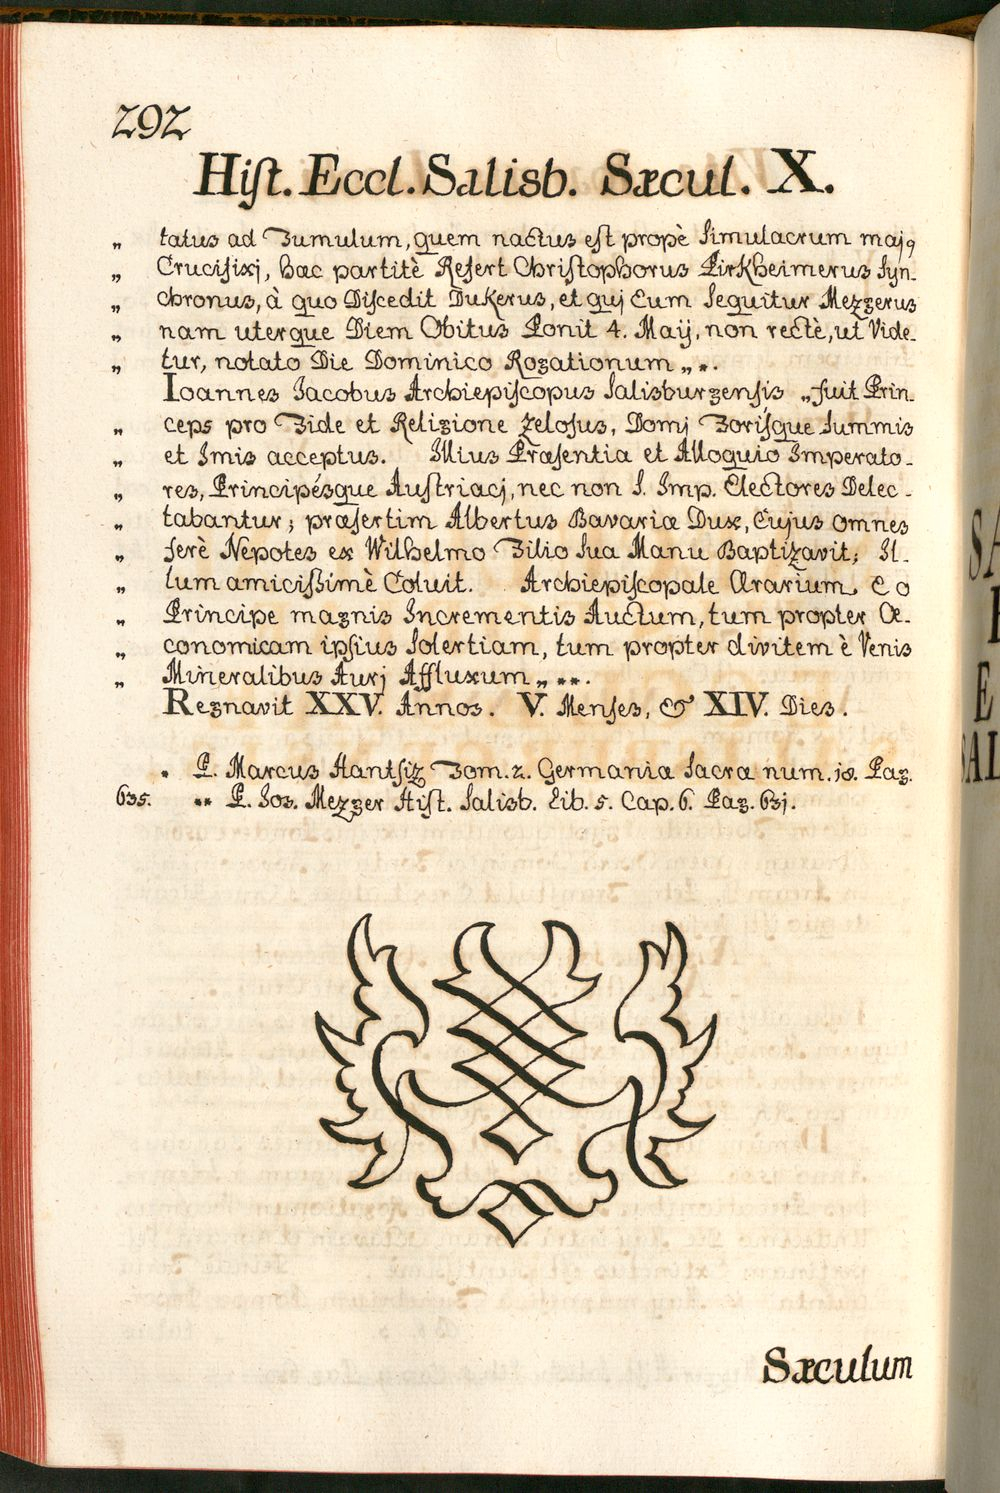 292
Hist. Eccl. Salisb. Sæcul. X.
„ tatus ad Tumulum, quem nactus est propè Simulacrum maj9
„ Crucifixj, hac partitè Refert Christophorus Pirkheimerus Syn-
„ chronus, à quo Discedit Dukerus, et quj Eum Sequitur Mezgerus
„ nam uterque Diem Obitus Ponit 4. Maÿ, non rectè, ut Vide-
„ tur, notato Die Dominico Rogationum „ *.
Ioannes Jacobus Archiepiscopus Salisburgensis „ fuit Prin-
„ ceps pro Fide et Religione Zelosus, Domj Forisque Summis
„ et Imis acceptus. Illius Præsentia et Alloquio Imperato-
„ res, Principésque Austriacj, nec non S. Imp. Electores Delec-
„ tabantur; præsertim Albertus Bavariæ Dux, Cujus omnes
„ ferè Nepotes ex Wilhelmo Filio Sua Manu Baptizavit; Il-
„ lum amicissimè Coluit. Archiepiscopale Ærarium, Eo
„ Principe magnis Incrementis Auctum, tum propter Œ-
„ conomicam ipsius Solertiam, tum propter divitem è Venis
„ Mineralibus Aurj Affluxum „ **.
Regnavit XXV. Annos. V. Menses, & XIV. Dies.
* P. Marcus Hantsiz Tom. 2. Germania Sacra num. 18. Pag.
635. ** P. Jos. Mezger Hist. Salisb. Lib. 5. Cap. 6. Pag. 631.
Sæculum